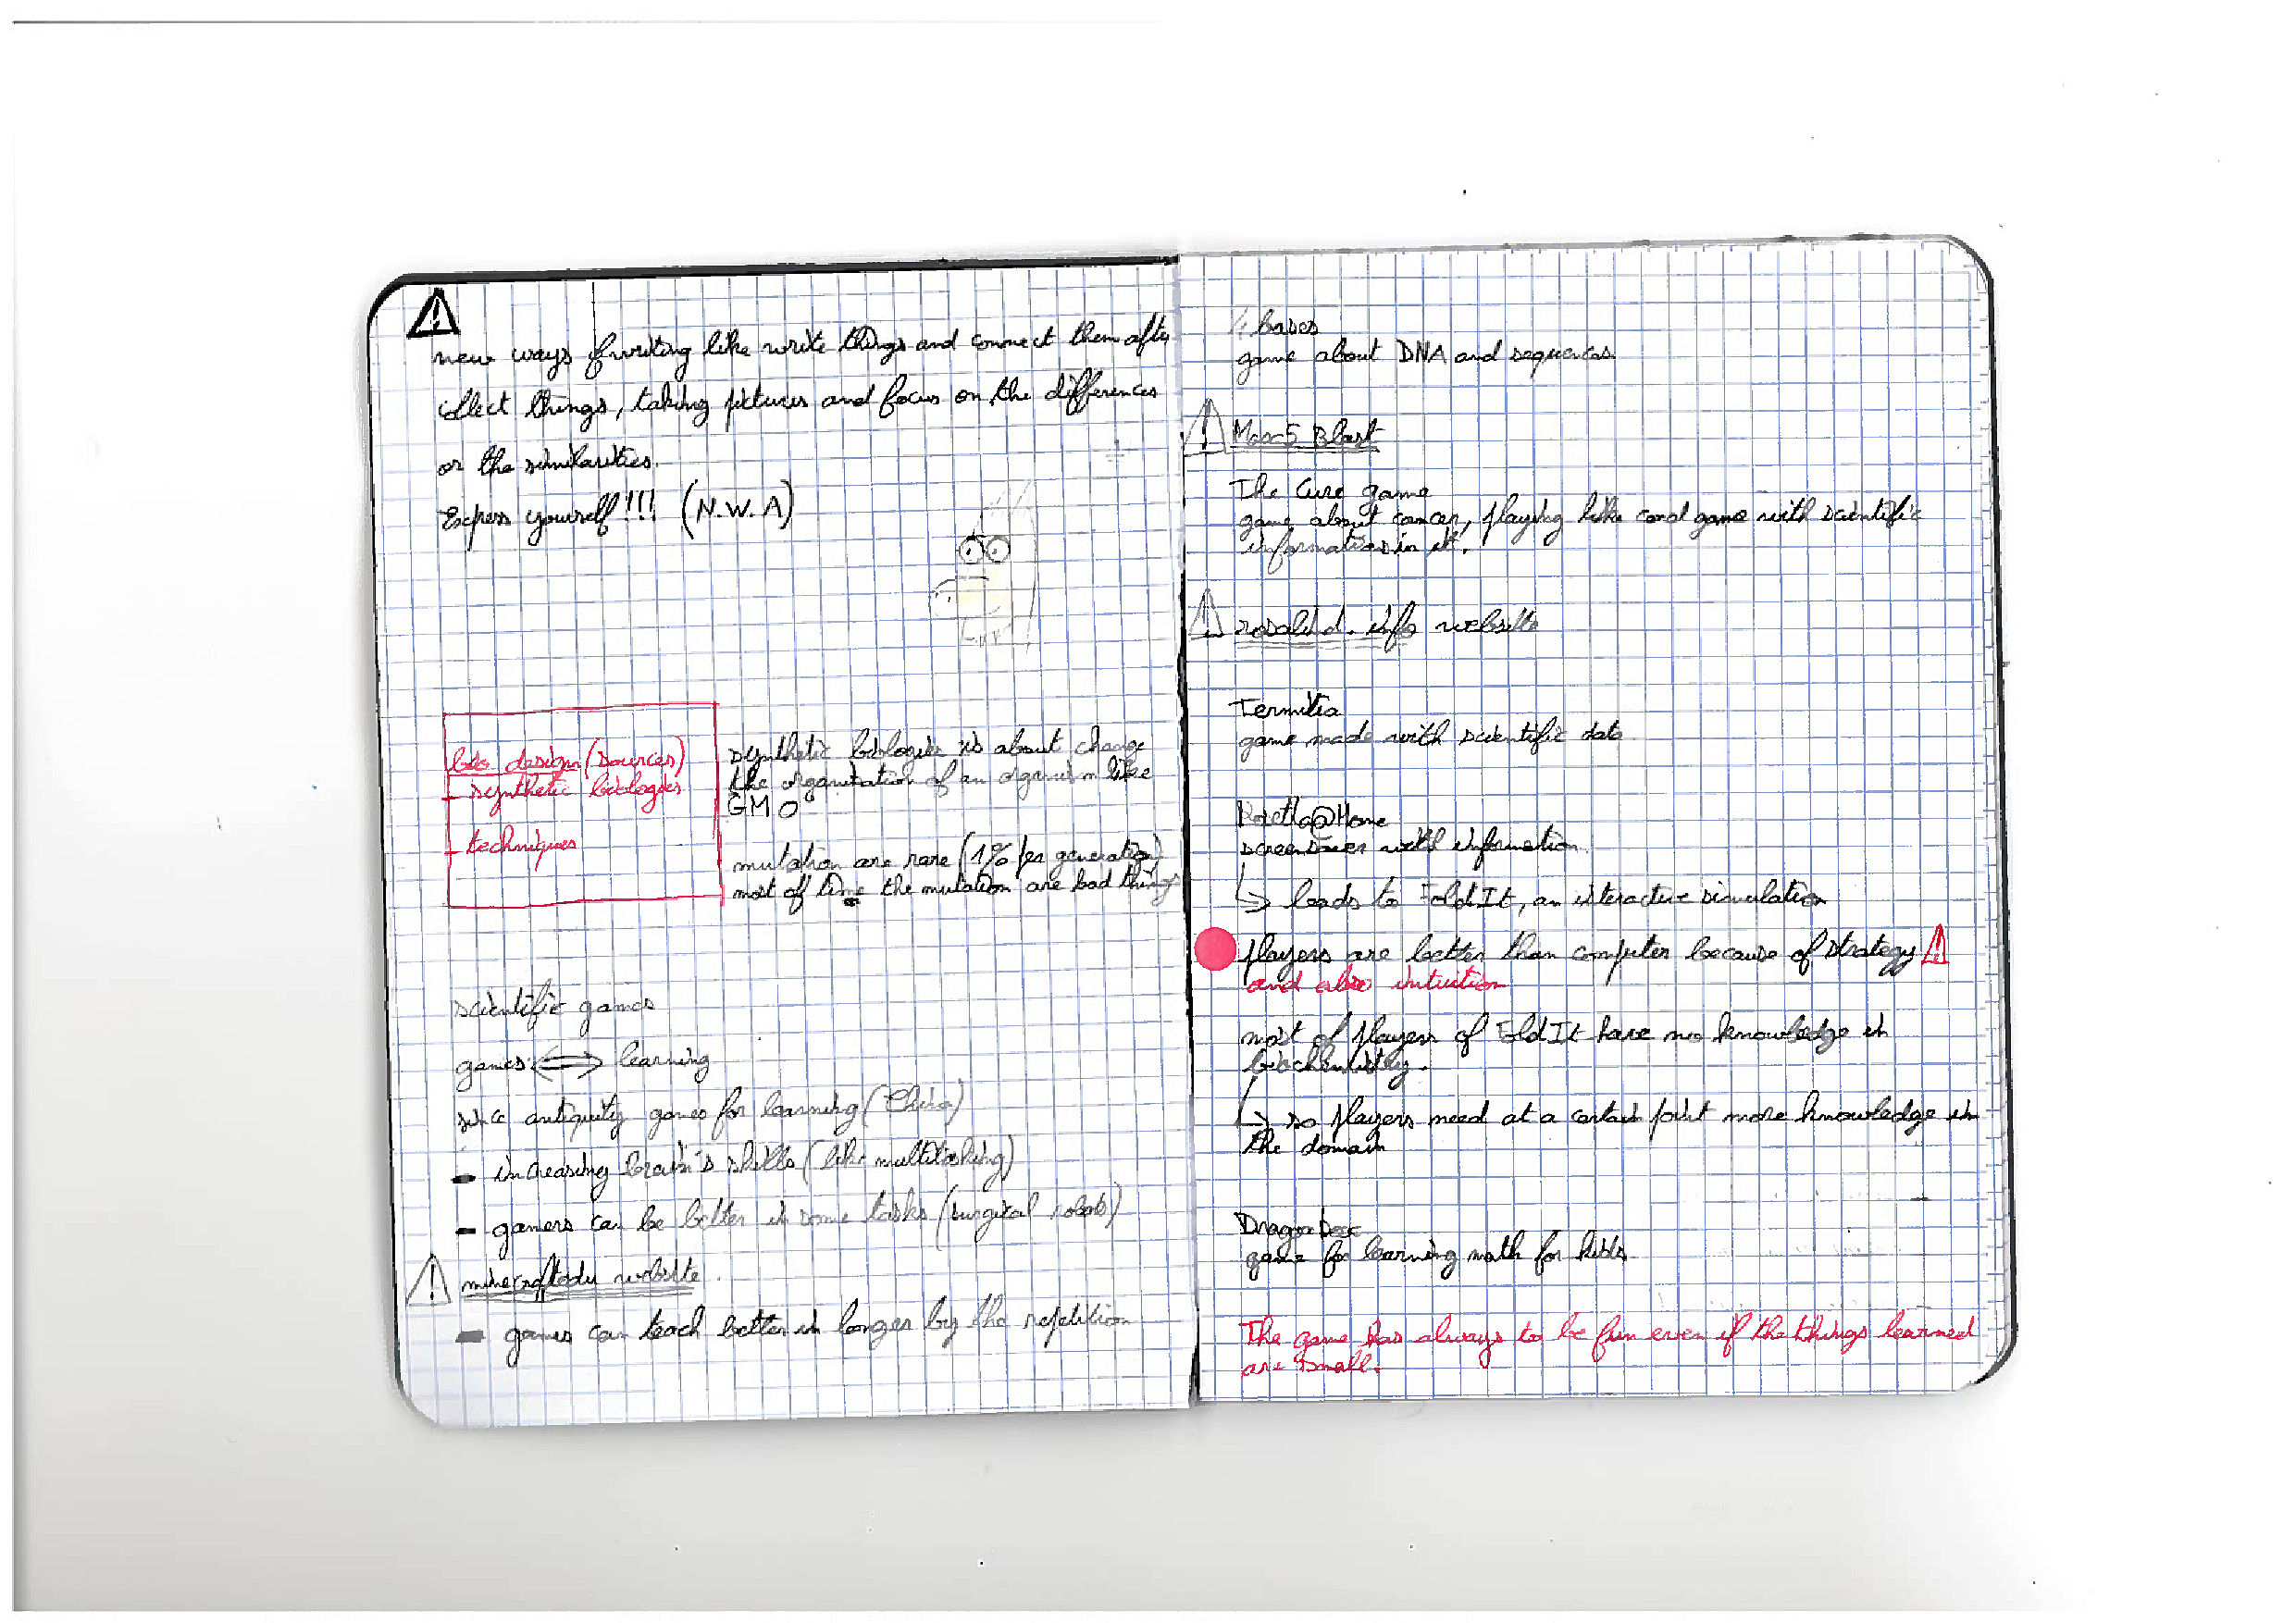 new ways of writing like write things and connect them after
collect things, taking pictures and focus on the differences
or the similarities.
Express yourself!!! (N.W.A)
bio design (sources)
- synthetic biologies
- techniques
synthetic biologies is about change
the organisation of an organism like
GMO
mutation are rare (1% per generation)
most of time the mutation are bad things
scientific games
games <=> learning
since antiquity games for learning (China)
- increasing brain's skills (like multitasking)
- gamers can be better in some tasks (surgical robots)
minecraftedu website.
- games can teach better in longer by the repetition
4 bases
game about DNA and sequences
Max-5 Blast
The Cure game
game about cancer, playing like card game with scientific
information in it.
rosalind.info website
Termitia
game made with scientific data
Rosetta@Home
screensaver with information
↳ leads to FoldIt, an interactive simulation
players are better than computer because of strategy
and also intuition
most of players of FoldIt have no knowledge in
biochemistry.
↳ so players need at a certain point more knowledge in
the domain
DragonBox
game for learning math for kids
The game has always to be fun even if the things learned
are small.